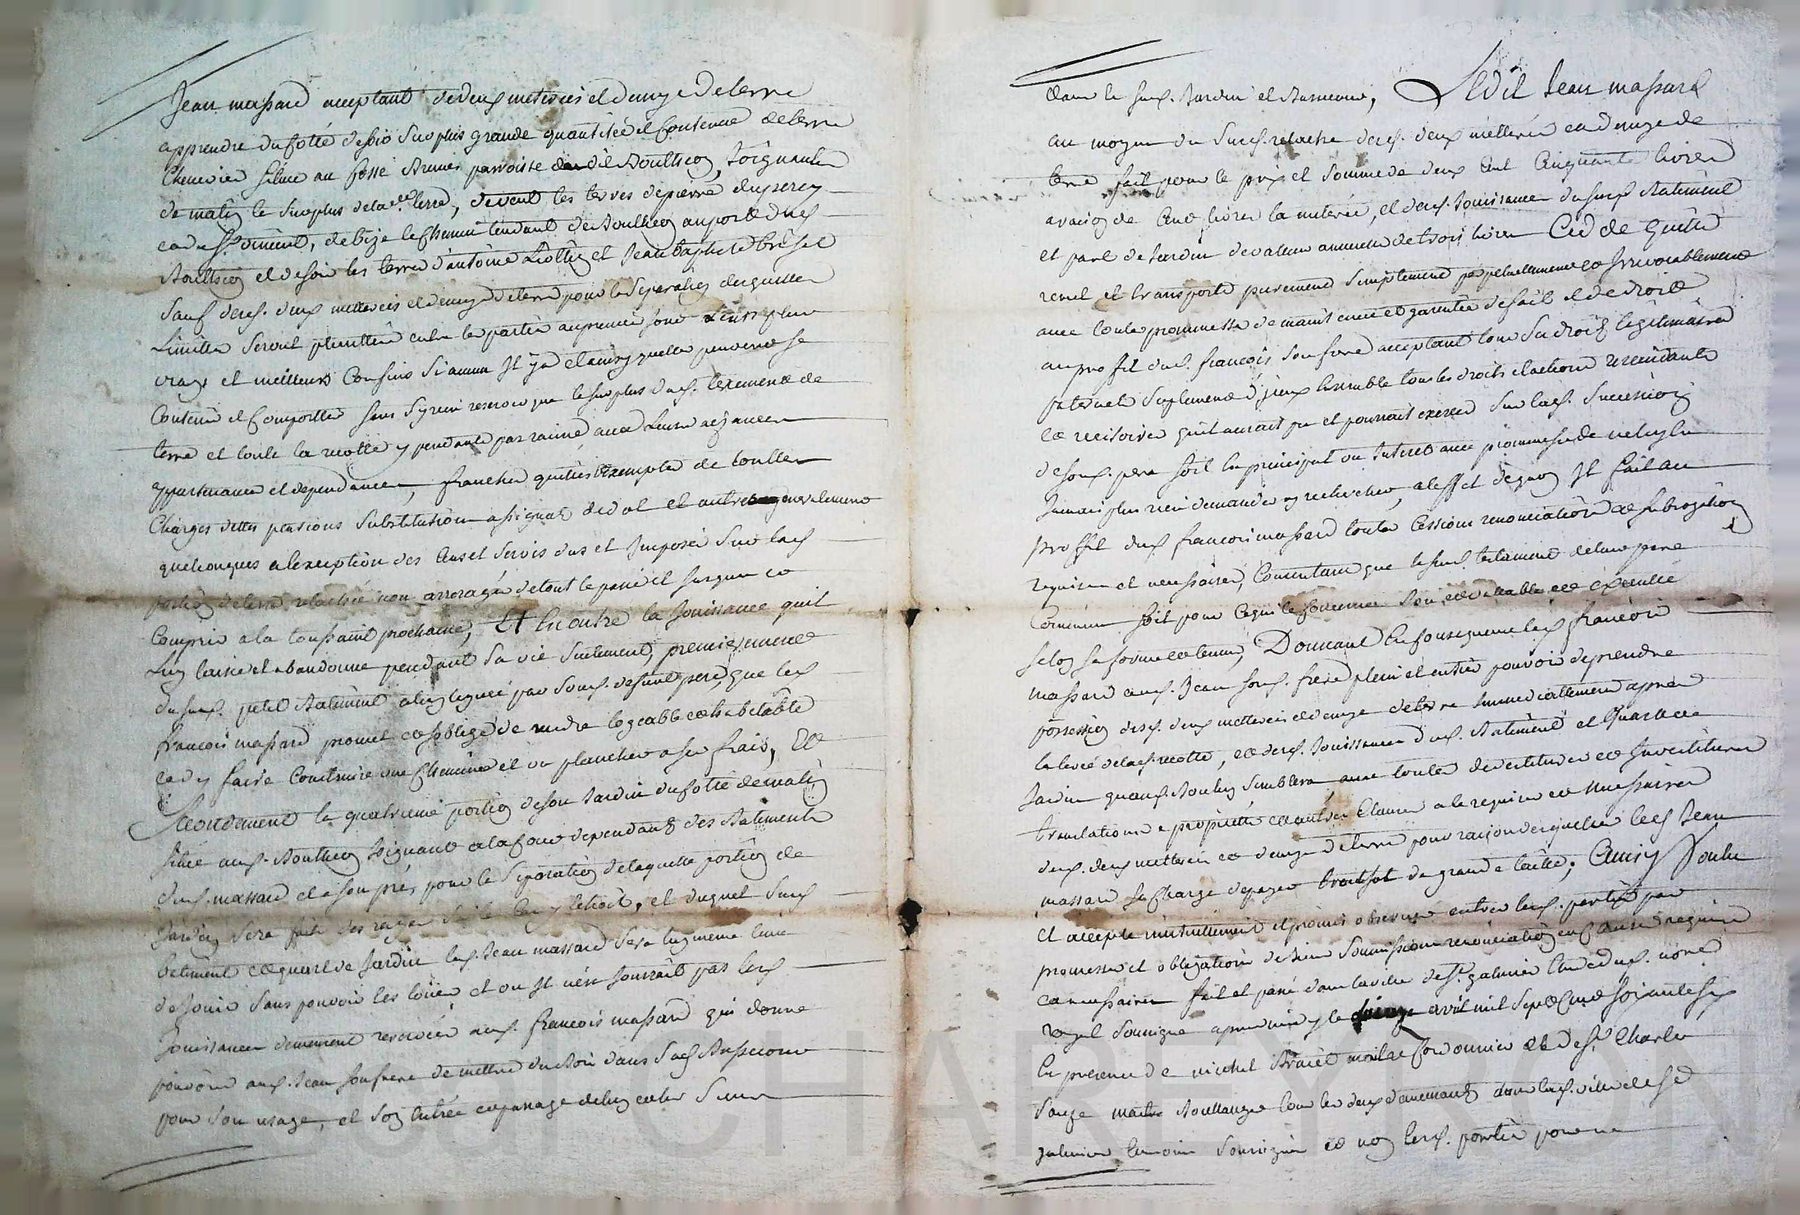 Jean massard acceptant de deux meterées et demye de terre
apprendre du cotté de soir sur plus grande quantitée et contenue de terre
Chenevier située au fossé parroisse dudit Joignante
de matin le surplus de la de terre, de vent les terres de pierre
de bize le chemin tendant de au port dud
et de soir les terres d'antoine et Jean baptiste
Sauf desd. deux meterées et demye de terre pour la separation desquelles
Limittes seront planttées entre les parties au premier jour Leurs plus
vrays et meilleurs Confins Si aucun Il y a et ainsy quelle peuvent se
Contenir et Comporter sans s'y rien reserver que le surplus dud. tenement de
terre et toute la recolte y pendante par racine avec Leurs aizances
appartenances et dependances, franches quittes Exempte de touttes
Charges dettes pensions Substitutions assignat de dot et autres generalement
quelconques a l'exception des Cens et servis dus et Imposés sur lad
portion de terre relachée non arreragée de tout le passé et jusques ce
compris a la toussaint prochaine, Et En outre la Jouissance qu'il
Luy laisse et abandonne pendant sa vie seulement, premierement
du susd. petit Batiment a luy legué par sond. defunt pere, que led
françois massard promet et s'oblige de rendre logeable et habitable
et d'y faire Construire une Cheminée et un plancher a ses frais, Et
Secondement la quatrieme portion de son Jardin du cotté de matin
située aud. Joignant a la Cour dependante des Batiments
dud. massard et a son prés pour la separation de laquelle portion de
Jardin sera fait des et duquel susd
batiment et quart de Jardin led. Jean massard sera luy meme tenu
de Jouir sans pouvoir les loüer et ou Il n'en jouirait pas lesd
Jouissances demeurent reservées aud. françois massard qui donne
pouvoir aud. Jean son frere de mettre du bois dans sad
pour son usage, et son entrée et passage de luy et les siens
dans le susd. Jardin et Ledit Jean massard
au moyen du susd. relache desd. deux metterées et demye de
terre fait pour le prix et somme de deux Cent Cinquante livres
a raison de Cent livres la meterée, et desd. Jouissances du susd. Batiment
et part de Jardin de valleur annuelle de trois livres Cede quitte
remet et transporte purement simplement perpetuellement et Irrevocablement
avec toute promesse de maintenue et garentie de fait et de droit
au profit dud. françois son frere acceptant tous ses droits legitimaires
paternels suplement d'jceux Ensemble tous les droits et actions rescindants
et recisoires qu'il aurait pu et pourrait exercer sur lad. succession
de sond. pere soit En principal ou Interets avec promesse de ne luy en
Jamais plus rien demander ny rechercher, a l'effet de quoy Il fait au
proffit dud. françois massard toutes Cessions renonciations et subrogations
requises et necessaires, Consentant que le susd. testament de leur pere
commun soit pour ce qui le Concerne bon et valable et exécuté
selon sa forme et teneur, Donnant En Consequence led. françois
massard aud. Jean sond. frere plein et entier pouvoir de prendre
possession desd. deux metterées et demye de terre Immediatement apres
la levée de lad. recolte, et desd. Jouissances dud. Batiment et Quart de
Jardin quand bon luy semblera avec toutes devestitures et Investitures
translations de propriété et autres Clauses a ce requises et necessaires
desd. deux metterées et demye de terre pour raison desquelles led. Jean
massard se Charge de payer de grande taille, Ainsy Voulu
Et accepté mutuellement et promis observer entre lesd. parties par
promesses et obligations de biens soumissions renonciations et Clauses requises
et necessaires fait et passé dans la ville de St. galmier Etude dud. notre
royal soussigné apres midy le avril mil sept Cent soixante six
En presence de michel maitre Cordonnier et de Sr. Charles
maitre Boulanger tous les deux demeurants dans lad. ville de St
galmier temoins soussignés et non lesd. parties pour ne
Gal CHAREYRON